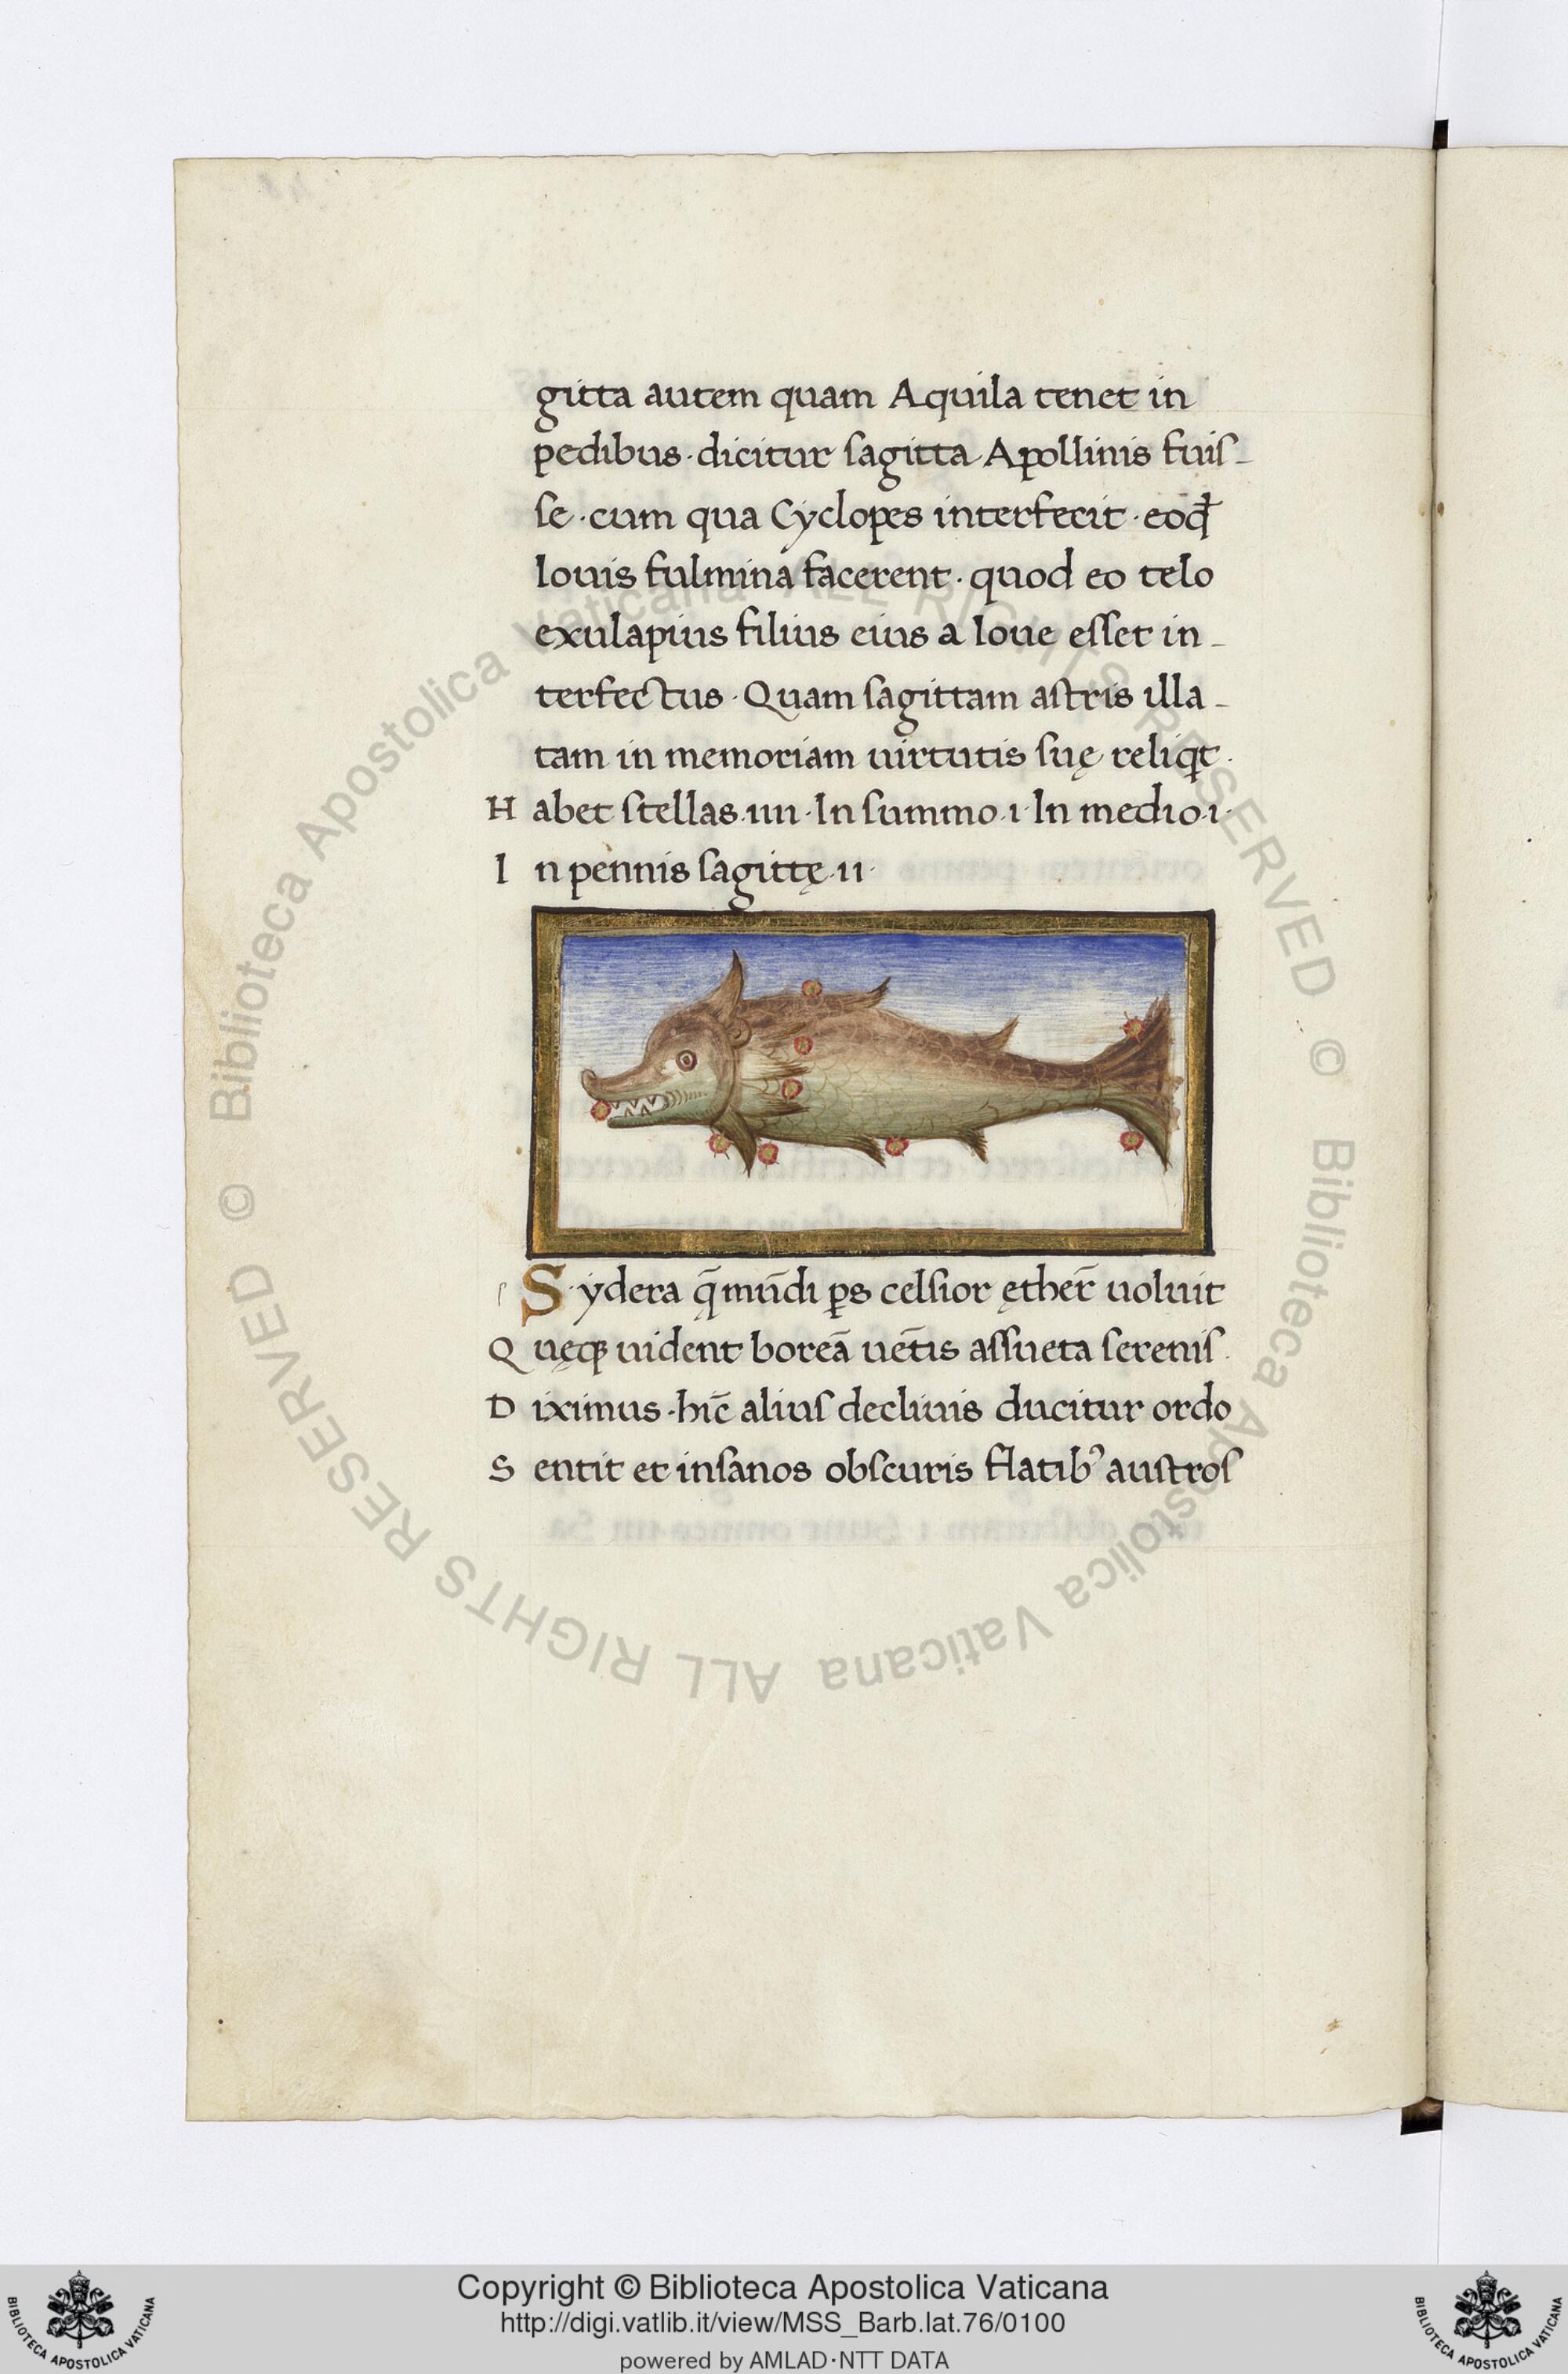 gitta autem quam Aquila tenet in
pedibus · dicitur sagitta Apollinis fuis-
se · cum qua Cyclopes interfecit · eoqđ
Iouis fulmina facerent · quod eo telo
exulapius filius eius a Ioue esset in-
terfectus · Quam sagittam astris illa-
tam in memoriam uirtutis suę reliqt ·
Habet stellas · iiii · In summo · i · In medio · i ·
In pennis sagittę · ii ·
S·ydera q̄ mūdi ꝑs celsior ęther̄ uoluit
Quęqꝫ uident boreā uētis assueta serenis ·
Diximus · hīc alius decliuis ducitur ordo
Sentit et insanos obscuris flatibꝰ austros
© Biblioteca Apostolica Vaticana ALL RIGHTS RESERVED
© Biblioteca Apostolica Vaticana ALL RIGHTS RESERVED
BIBLIOTECA APOSTOLICA VATICANA
Copyright © Biblioteca Apostolica Vaticana
http://digi.vatlib.it/view/MSS_Barb.lat.76/0100
powered by AMLAD·NTT DATA
BIBLIOTECA APOSTOLICA VATICANA